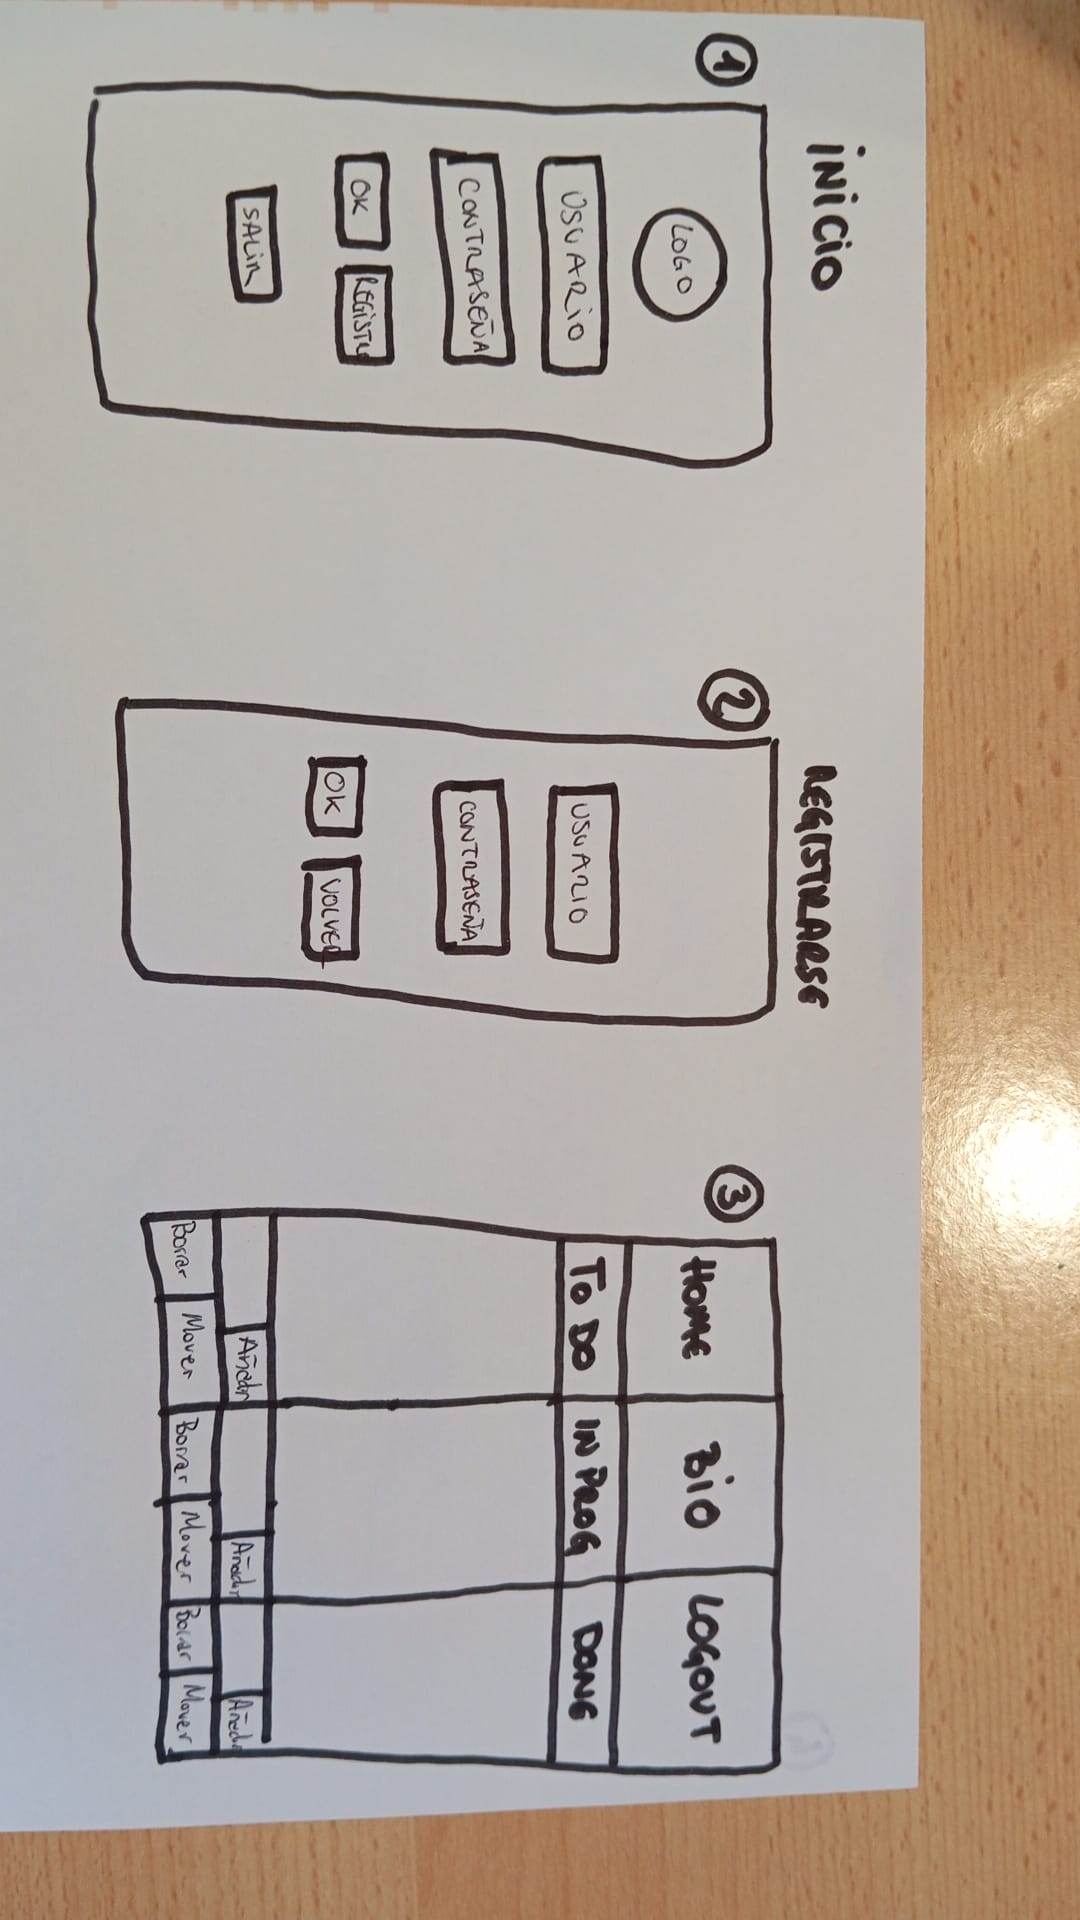 iNiCiO
1
LOGO
USUARiO
CONTRASEÑA
OK
REGiSTR
SALiR
REGISTRARSE
2
USUARIO
CONTRASEÑA
OK
VOLVER
3
HOME BiO LOGOUT
TO DO IN PROG DONE
Añadir Añadir Añadir
Borrar Mover Borrar Mover Borrar Mover